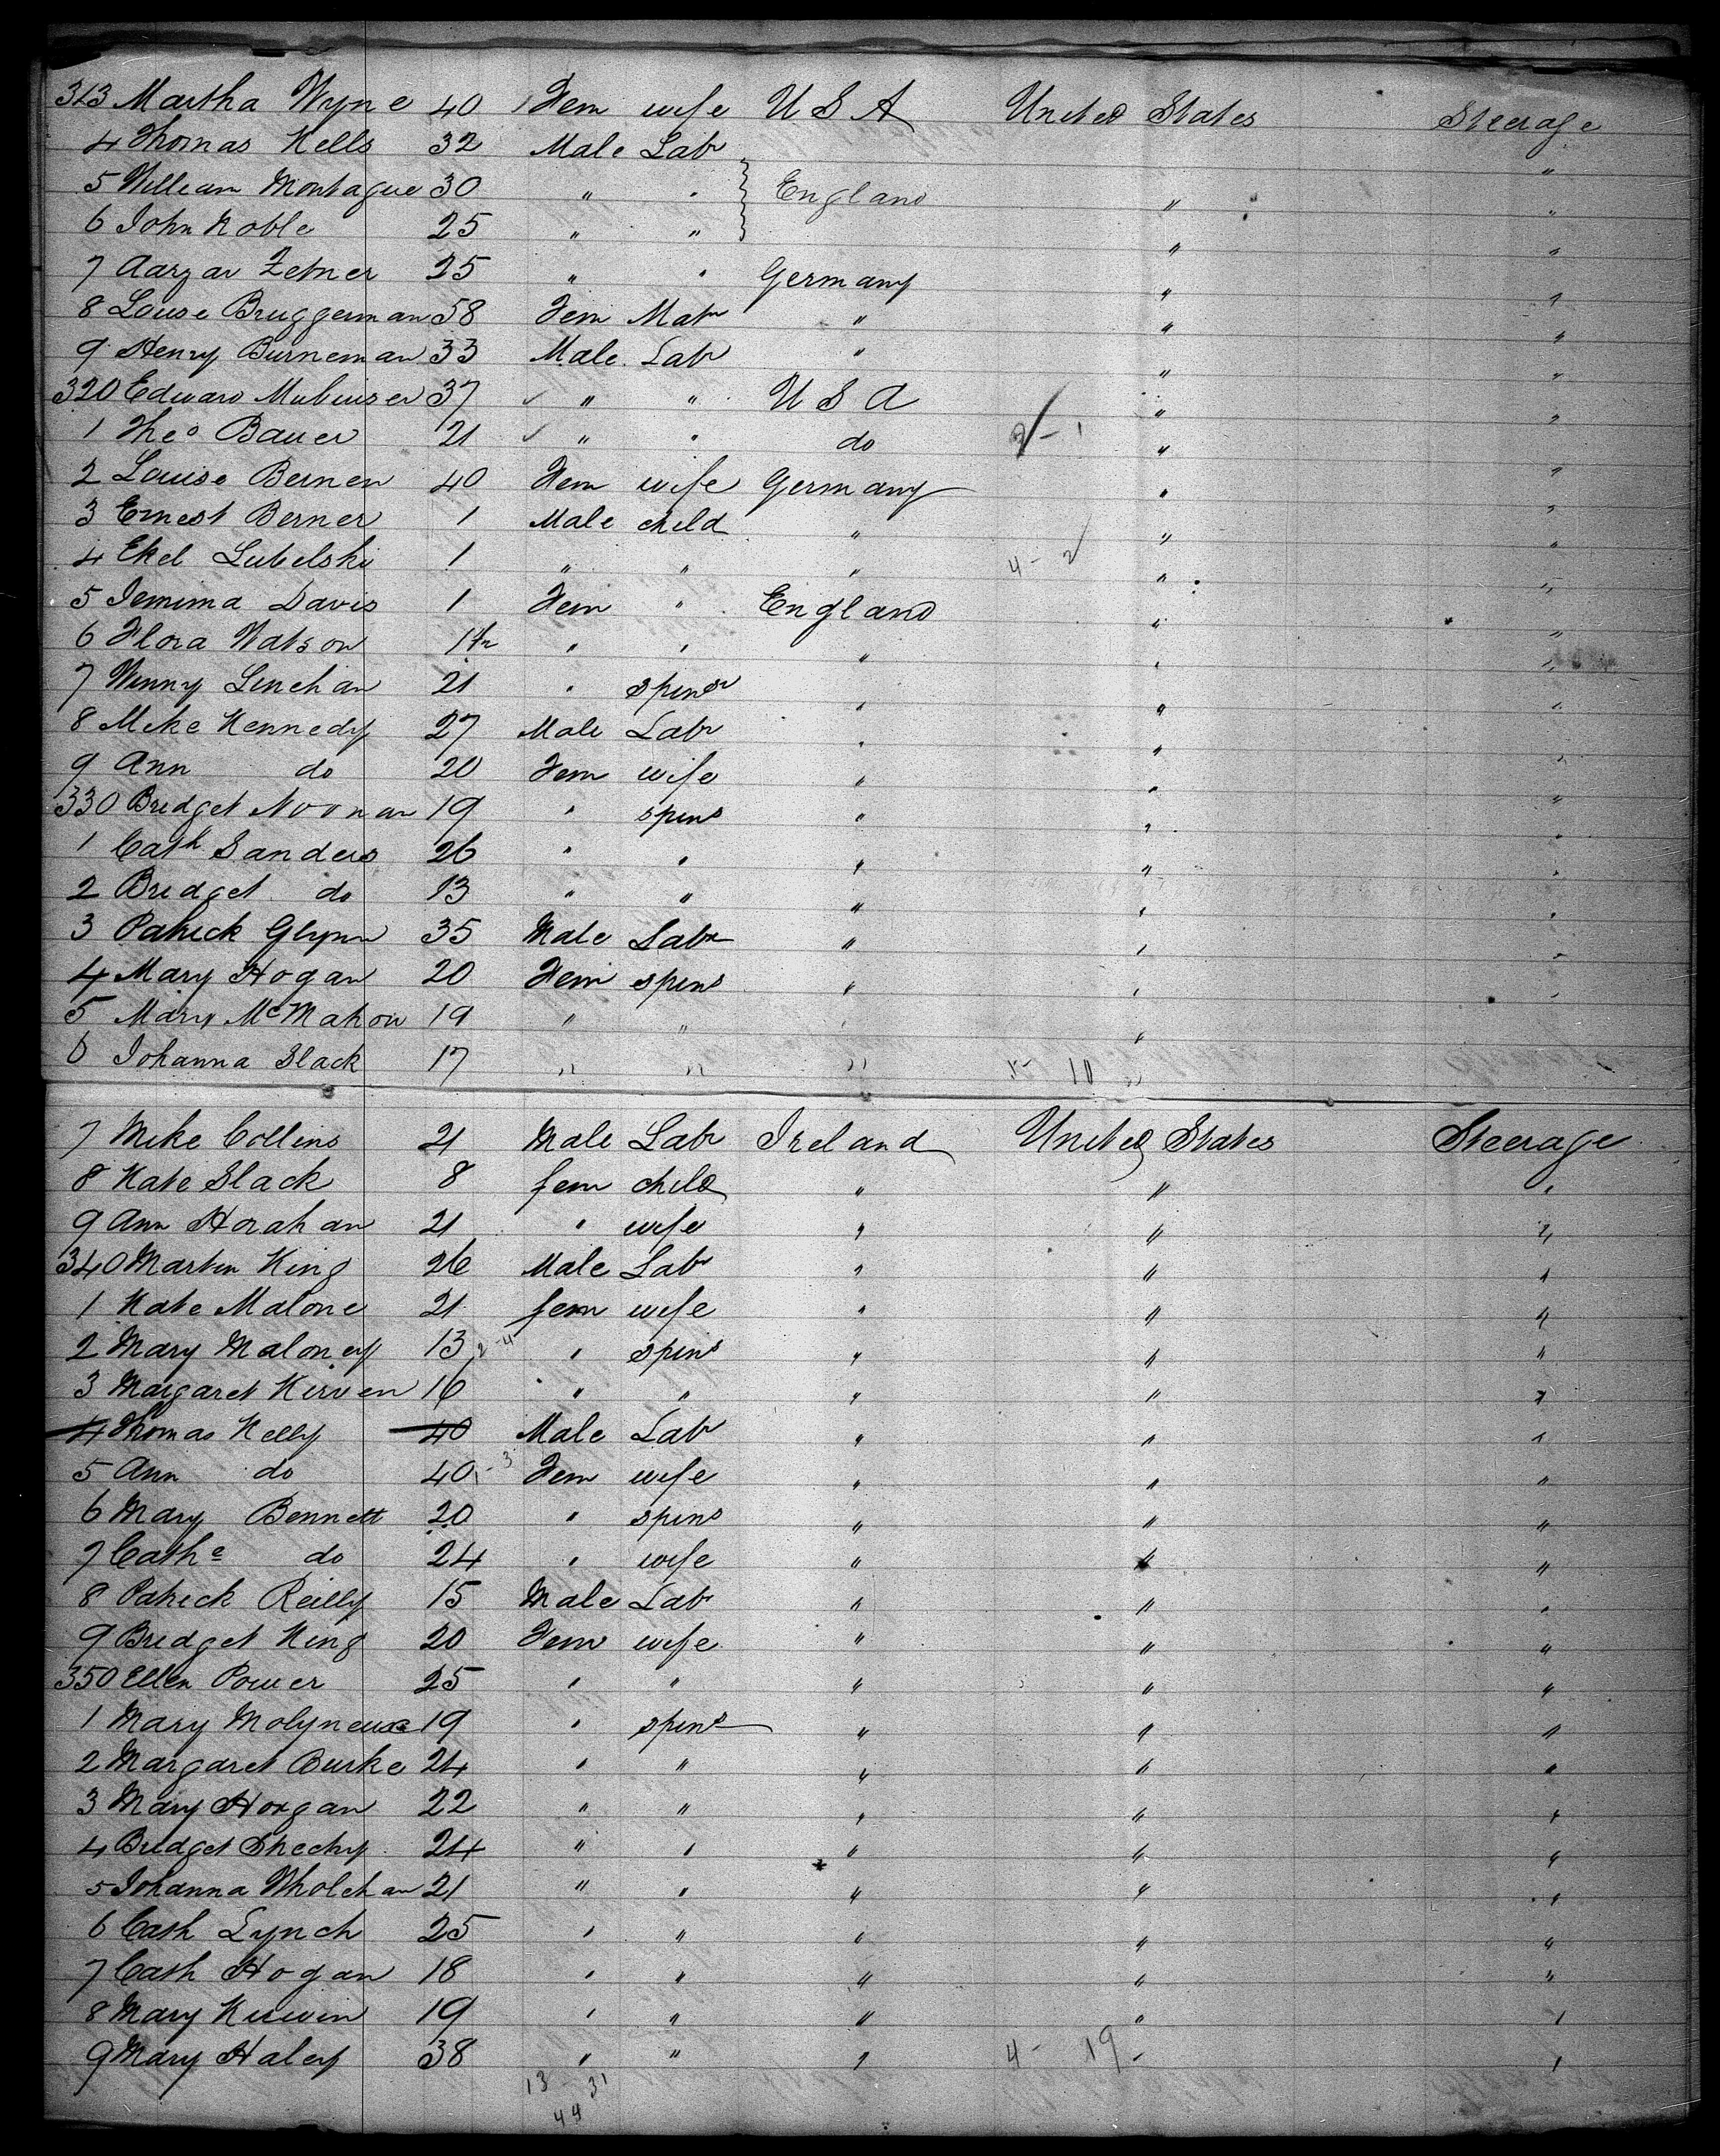 313 Martha Wyne 40 Fem wife U S A United States Steerage
4 Thomas Kells 32 Male Labr "
5 William Montague 30 " " England " "
6 John Noble 25 " " " "
7 Zetner 25 " " Germany " "
8 Louise Bruggerman 58 Fem Matr " " "
9 Henry Burneman 33 Male Labr " " "
320 Edward 37 " " U S A " "
1 Theo Bauer 21 " " do 2-1 " "
2 Louise Berner 40 Fem wife Germany " "
3 Ernest Berner 1 Male child " " "
4 Ekel Lubelski 1 " " " 4-2 " "
5 Jemima Davis 1 Fem " England " "
6 Flora Watson " " " " "
7 Winny Linehan 21 " spinsr " " "
8 Mike Kennedy 27 Male Labr " " "
9 Ann do 20 Fem wife " " "
330 Bridget Noonan 19 " spins " " "
1 Cath Sanders 26 " " " " "
2 Bridget do 13 " " " " "
3 Patrick Glynn 35 Male Labr " " "
4 Mary Hogan 20 Fem spins " " "
5 Mary McMahon 19 " " " "
6 Johanna Slack 17 " " " 10 "
7 Mike Collins 21 Male Labr Ireland United States Steerage
8 Kate Slack 8 fem child " " "
9 Ann Horahan 21 " wife " " "
340 Martin King 26 Male Labr " " "
1 Kate Malone 21 fem wife " " "
2 Mary Maloney 13 2-4 " spins " " "
3 Margaret Kirven 16 " " " " "
4 Thomas Kelly 40 Male Labr " " "
5 Ann do 40 1-3 Fem wife " " "
6 Mary Bennett 20 " spins " " "
7 Cathe do 24 " wife " " "
8 Patrick Reilly 15 Male Labr " " "
9 Bridget King 20 Fem wife " " "
350 Ellen Power 25 " " " " "
1 Mary Molyneux 19 " spins " " "
2 Margaret Burke 24 " " " " "
3 Mary Horgan 22 " " " " "
4 Bridget Sheehy 24 " " " " "
5 Johanna Wholehan 21 " " " " "
6 Cath Lynch 25 " " " " "
7 Cath Hogan 18 " " " " "
8 Mary Kirwin 19 " " " " "
9 Mary Haley 38 " " " 4- 19 " "
13 - 31
44